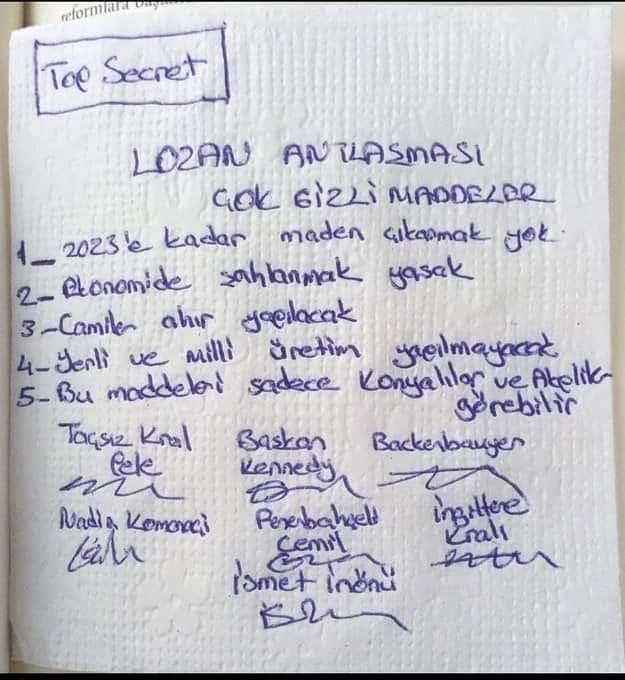 reformlara başla
Top Secret
LOZAN ANTLAŞMASI
ÇOK GİZLİ MADDELER
1_ 2023'e kadar maden çıkarmak yok.
2- Ekonomide şahlanmak yasak
3-Camiler ahır yapılacak
4- Yerli ve milli üretim yapılmayacak
5- Bu maddeleri sadece Konyalılar ve Akelik-
görebilir
Taçsız Kral Başkan Backenbauyer
Pele Kennedy
Nadia Komanaçi Fenerbahçeli İngiltere
Cemil Kralı
İsmet İnönü